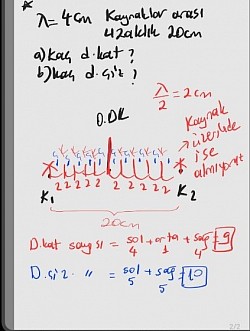 λ = 4cm Kaynaklar arası
uzaklık 20cm
a) Kaç d. kat ?
b) Kaç d. çiz ?
λ/2 = 2cm
0.DK
Kaynak
üzerinde
ise
alınmıyor
K₁ 2 2 2 2 2 2 2 2 2 2 K₂
20cm
D. kat sayısı = sol + orta + sağ = 9
4 1 4
D. çiz " = sol + sağ = 10
5 5
2/2